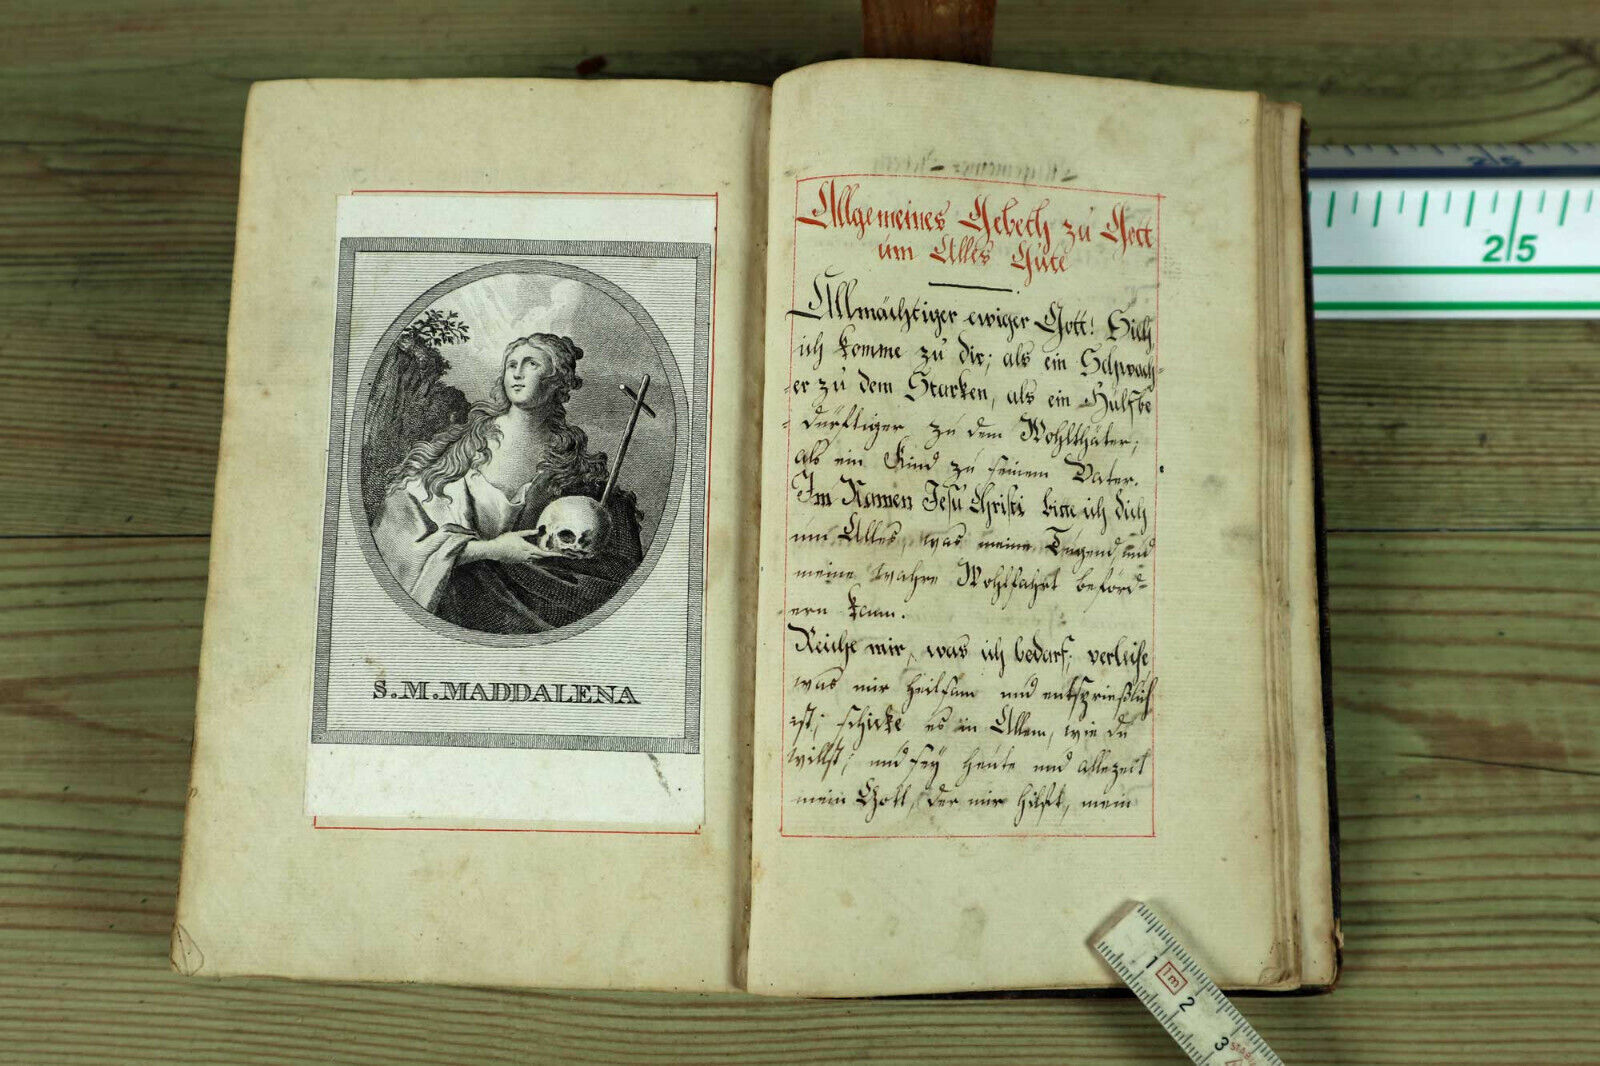 S.M.MADDALENA
Allgemeines Gebeth zu Gott
um Alles Gute
Allmächtiger ewiger Gott! Sieh
ich komme zu dir; als ein Schwach-
-er zu dem Starken, als ein Hülfbe
-dürftiger zu dem Wohlthäter;
als ein Kind zu seinem Vater.
Im Namen Jesu Christi bitte ich dich
um Alles, was meine Tugend und
meine wahre Wohlfahrt beförd-
-ern kann.
Reiche mir, was ich bedarf; verleihe
was mir heilsam und entsprießlich
ist; schicke es in Allem, wie du
willst; und sey heute und allezeit
mein Gott, der mir hilft, mein
25
25
1
1m
2
3